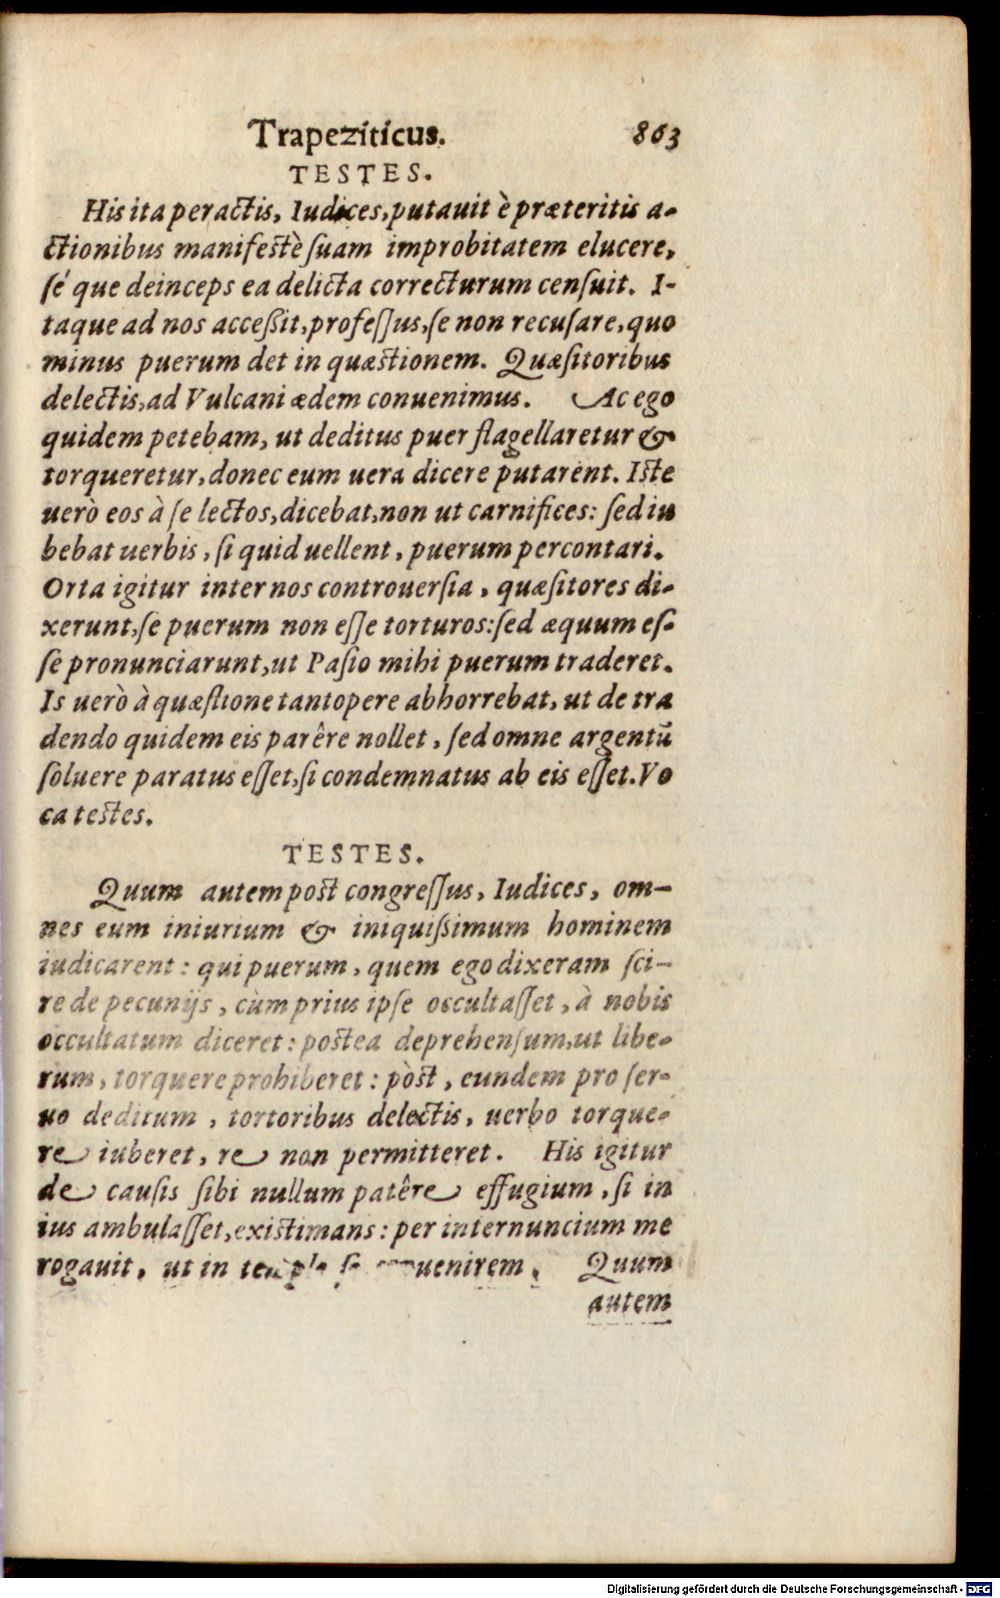 Trapeziticus. 863
TESTES.
His ita peractis, Iudices, putauit è præteritis a-
ctionibus manifestè suam improbitatem elucere,
sé que deinceps ea delicta correcturum censuit. I-
taque ad nos acceßit, professus, se non recusare, quo
minus puerum det in quæstionem. Quæsitoribus
delectis, ad Vulcani ædem conuenimus. Ac ego
quidem petebam, ut deditus puer flagellaretur &
torqueretur, donec eum uera dicere putarent. Iste
uerò eos à se lectos, dicebat, non ut carnifices: sed iu
bebat uerbis, si quid uellent, puerum percontari.
Orta igitur inter nos controuersia, quæsitores di-
xerunt, se puerum non esse torturos: sed æquum es-
se pronunciarunt, ut Pasio mihi puerum traderet.
Is uerò à quæstione tantopere abhorrebat, ut de tra
dendo quidem eis parêre nollet, sed omne argentũ
soluere paratus esset, si condemnatus ab eis esset. Vo
ca testes.
TESTES.
Quum autem post congressus, Iudices, om-
nes eum iniurium & iniquißimum hominem
iudicarent: qui puerum, quem ego dixeram sci-
re de pecunijs, cùm prius ipse occultasset, à nobis
occultatum diceret: postea deprehensum, ut libe-
rum, torquere prohiberet: pòst, eundem pro ser-
uo deditum, tortoribus delectis, uerbo torque-
re iuberet, re non permitteret. His igitur
de causis sibi nullum patêre effugium, si in
ius ambulasset, existimans: per internuncium me
rogauit, ut in templo se conuenirem. Quum
autem
Digitalisierung gefördert durch die Deutsche Forschungsgemeinschaft - DFG